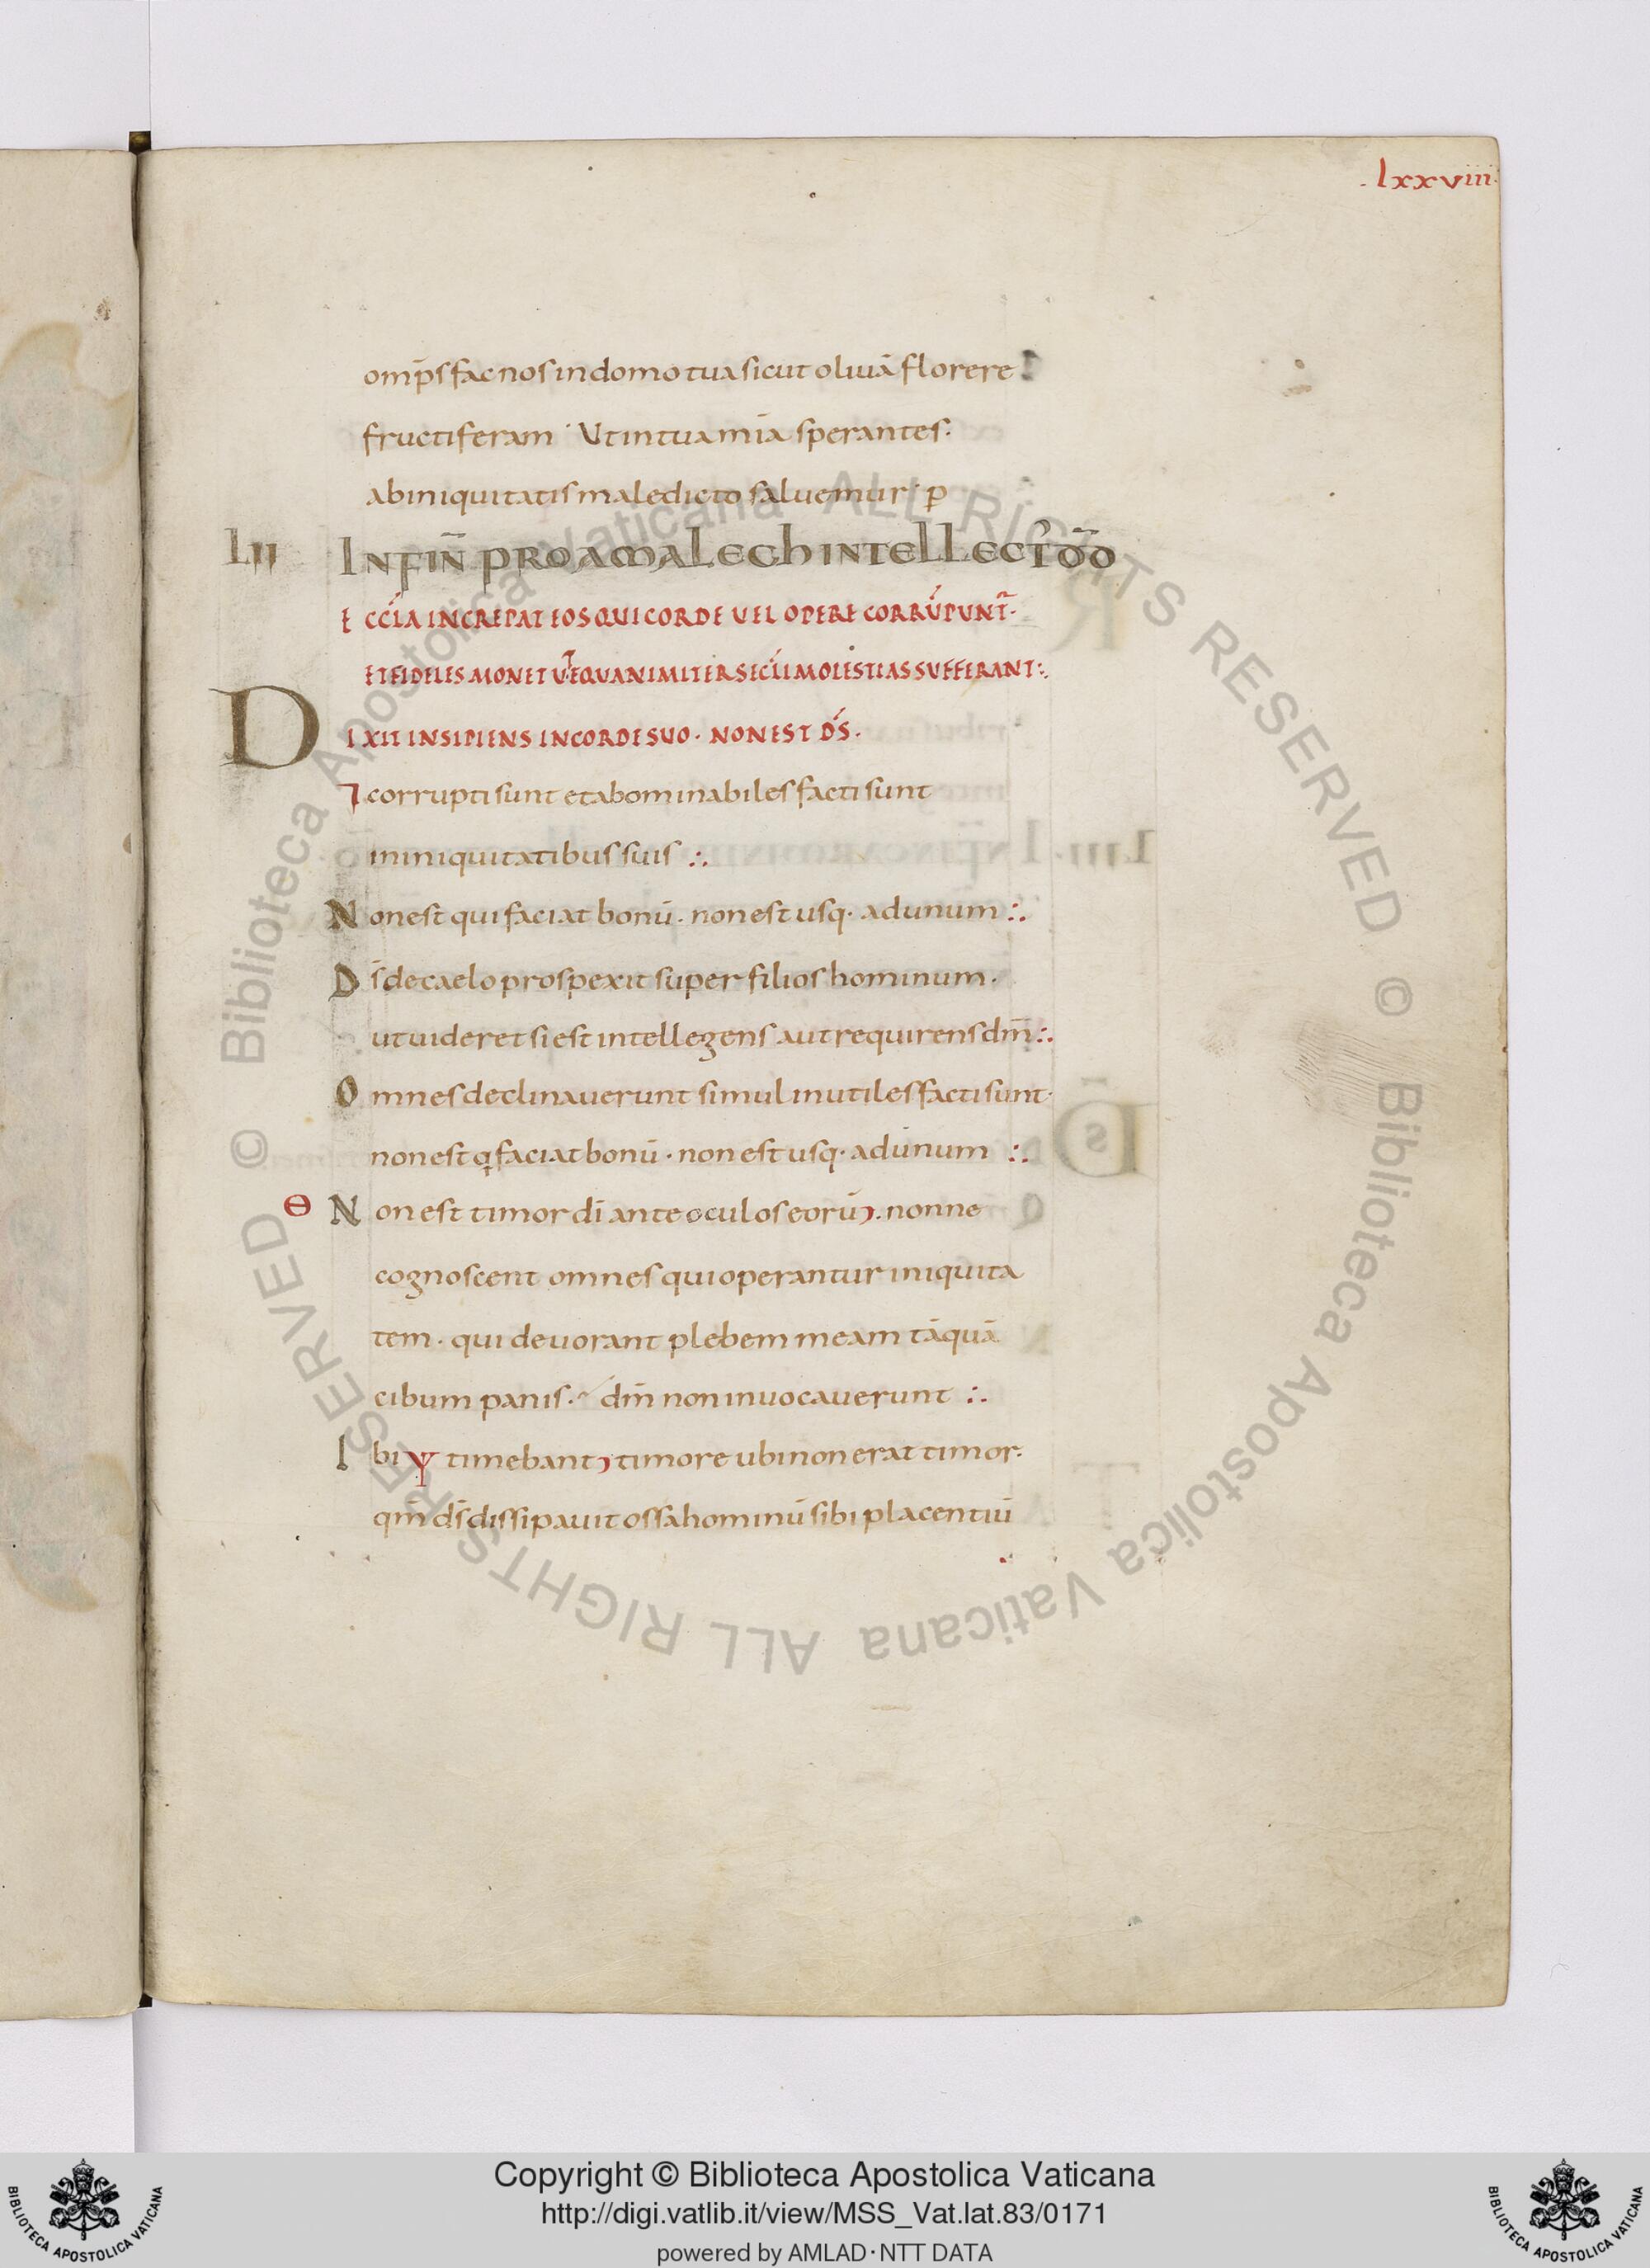 .lxxviii.
omp̄s fac nos in domo tua sicut oliuā florere
fructiferam· Ut in tua mīa sperantes·
ab iniquitatis maledicto saluemur· p̄
LII INFIÑ PRO AMALECH INTELLECT
ECCLA INCREPAT EOS QUI CORDE UEL OPERE CORRŪPUNT·
ET FIDELES MONET UT EQUANIMITER SECLI MOLESTIAS SUFFERANT:.
DIXIT INSIPIENS IN CORDE SUO· NON EST D̄S·
⁊ corrupti sunt et abominabiles facti sunt
in iniquitatibus suis ∴
Non est qui faciat bonū· non est usq· ad unum ∴
D̄s de caelo prospexit super filios hominum·
ut uideret si est intellegens aut requirens dm̄ ∴
Omnes declinauerunt simul inutiles facti sunt·
non est q faciat bonū· non est usq· ad unum ∴
Θ Non est timor dī ante oculos eorū. nonne
cognoscent omnes qui operantur iniquita
tem· qui deuorant plebem meam tāquā
cibum panis· dm̄ non inuocauerunt ∴
Ibi Ψ timebant timore ubi non erat timor·
qm̄ ds̄ dissipauit ossa hominū sibi placentiū
© Biblioteca Apostolica Vaticana ALL RIGHTS RESERVED
© Biblioteca Apostolica Vaticana ALL RIGHTS RESERVED
Copyright © Biblioteca Apostolica Vaticana
http://digi.vatlib.it/view/MSS_Vat.lat.83/0171
powered by AMLAD·NTT DATA
BIBLIOTECA APOSTOLICA VATICANA
BIBLIOTECA APOSTOLICA VATICANA